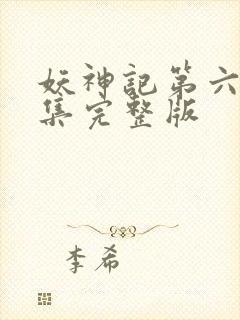 妖神記第六
集完整版
李希